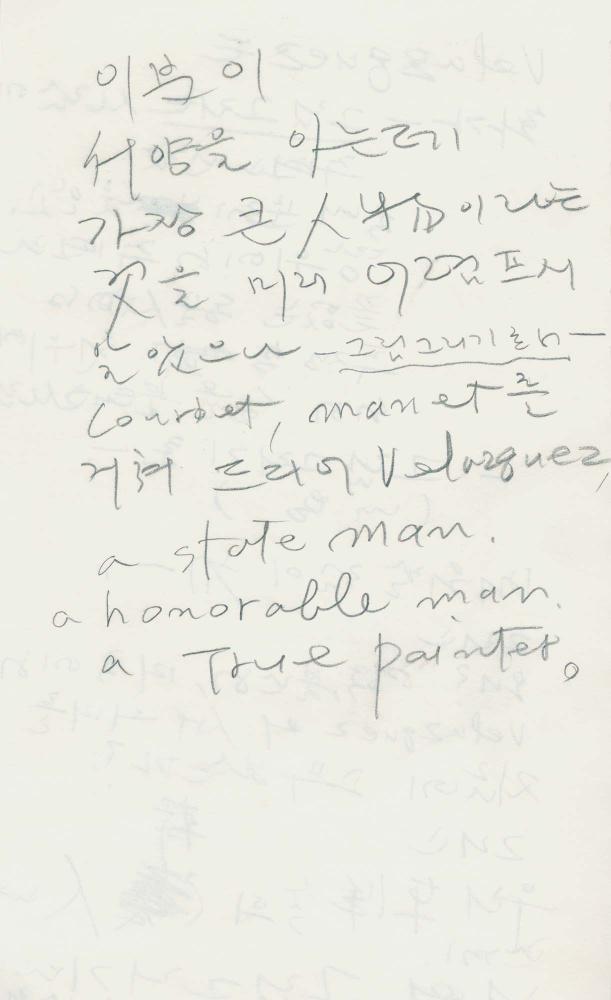 이북이
서양을 아는데
가장 큰 人物이라는
것을 미리 어렴프시
알았으나 - 그림그리기로서 -
Courbet, manet를
거쳐 드디어 Velazquez,
a state man.
a honorable man.
a True painter。